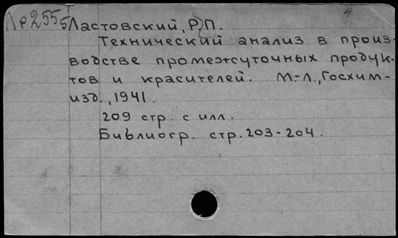 Ластовский, Р.П.
Технический анализ в произ-
водстве промежуточных продук-
тов и красителей. М.-Л., Госхим-
изд., 1941.
209 стр. с илл.
Библиогр. стр. 203-204.